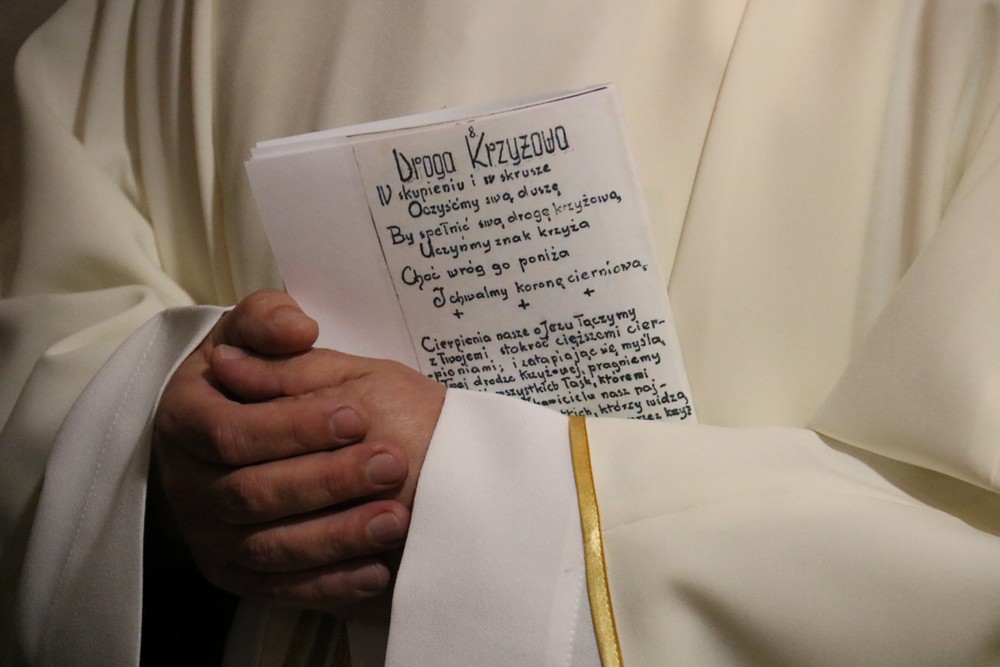 8.
Droga Krzyżowa
W skupieniu i w skrusze
Oczyśćmy swą duszę
By spełnić swą drogę krzyżową,
Uczyńmy znak krzyża
Choć wróg go poniża
I chwalmy koronę cierniową.
+ + +
Cierpienia nasze o Jezu łączymy
z Twojemi stokroć cięższemi cier-
pieniami; i zatapiając się myślą
drodze Krzyżowej, pragniemy
wszystkich Łask, któremi
nasz naj-
którzy widzą